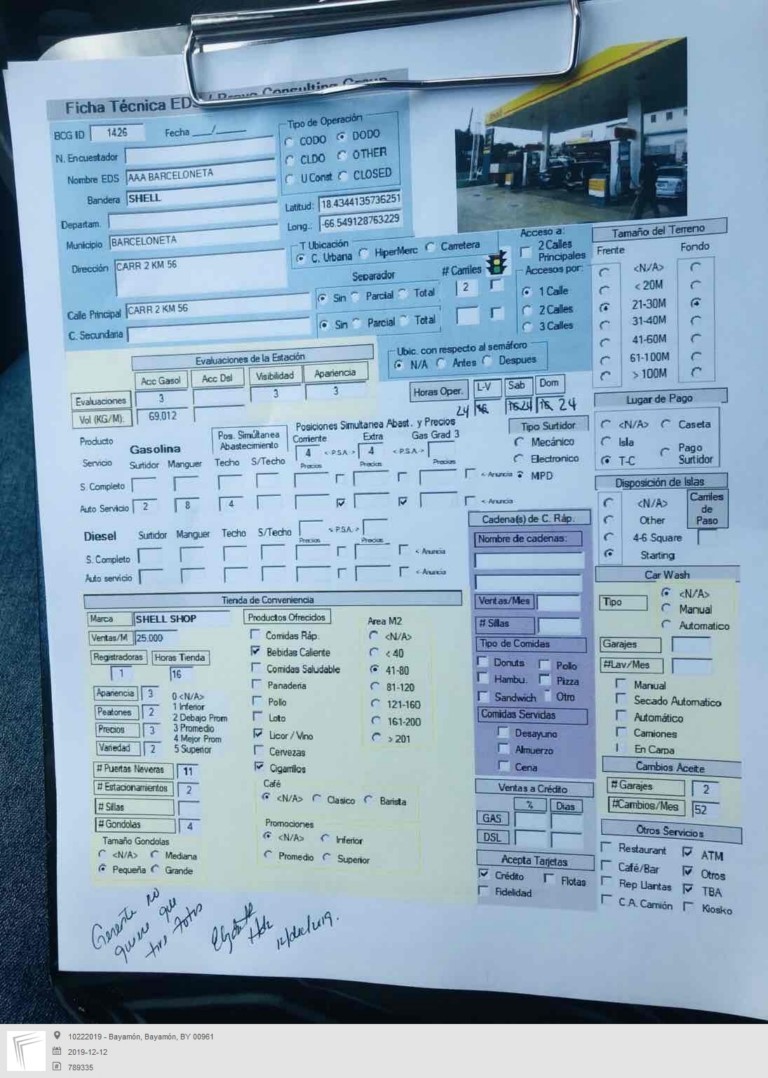 Ficha Técnica EDS / Bravo Consulting Group
BCG ID 1426 Fecha __/__
Tipo de Operación
CODO DODO
CLDO OTHER
U Const CLOSED
N. Encuestador
Nombre EDS AAA BARCELONETA
Bandera SHELL
Latitud: 18.4344135736251
Long.: -66.549128763229
Departam.
Municipio BARCELONETA
Dirección CARR 2 KM 56
T Ubicación
C. Urbana HiperMerc Carretera
Separador # Carriles
Sin Parcial Total 2
Calle Principal CARR 2 KM 56
Sin Parcial Total
C. Secundaria
Acceso a:
2 Calles Principales
Accesos por:
1 Calle
2 Calles
3 Calles
Ubic. con respecto al semáforo
N/A Antes Despues
Tamaño del Terreno
Frente Fondo
<N/A>
< 20M
21-30M
31-40M
41-60M
61-100M
> 100M
Evaluaciones de la Estación
Acc Gasol Acc Dsl Visibilidad Apariencia
Evaluaciones 3 3 3
Vol (KG/M): 69,012
Horas Oper. L-V Sab Dom
24 24 24
Lugar de Pago
<N/A> Caseta
Isla Pago Surtidor
T-C
Producto Gasolina
Pos. Simúltanea Abastecimiento
Posiciones Simultanea Abast. y Precios
Corriente Extra Gas Grad 3
4 < P.S.A. > 4 < P.S.A. >
Servicio Surtidor Manguer Techo S/Techo Precios Precios Precios
S. Completo < Anuncia
Auto Servicio 2 8 4 < Anuncia
Tipo Surtidor
Mecánico
Electronico
MPD
Diesel Surtidor Manguer Techo S/Techo < P.S.A. >
Precios Precios
S. Completo < Anuncia
Auto servicio < Anuncia
Disposición de Islas
<N/A>
Other
4-6 Square
Starting
Carriles de Paso
Cadena(s) de C. Ráp.
Nombre de cadenas:
Ventas/Mes
# Sillas
Tipo de Comidas
Donuts Pollo
Hambu. Pizza
Sandwich Otro
Comidas Servidas
Desayuno
Almuerzo
Cena
Car Wash
Tipo
<N/A>
Manual
Automatico
Garajes
#Lav/Mes
Manual
Secado Automatico
Automático
Camiones
En Carpa
Tienda de Conveniencia
Marca SHELL SHOP
Ventas/M 25.000
Registradoras Horas Tienda
1 16
Apariencia 3
Peatones 2
Precios 3
Variedad 2
0 <N/A>
1 Inferior
2 Debajo Prom
3 Promedio
4 Mejor Prom
5 Superior
# Puertas Neveras 11
# Estacionamientos 2
# Sillas
# Gondolas 4
Tamaño Gondolas
<N/A> Mediana
Pequeña Grande
Productos Ofrecidos
Comidas Ráp.
Bebidas Caliente
Comidas Saludable
Panaderia
Pollo
Loto
Licor / Vino
Cervezas
Cigarrillos
Area M2
<N/A>
< 40
41-80
81-120
121-160
161-200
> 201
Café
<N/A> Clasico Barista
Promociones
<N/A> Inferior
Promedio Superior
Ventas a Crédito
% Dias
GAS
DSL
Acepta Tarjetas
Crédito Flotas
Fidelidad
Cambios Aceite
# Garajes 2
#Cambios/Mes 52
Otros Servicios
Restaurant ATM
Café/Bar Otros
Rep Llantas TBA
C.A. Camión Kiosko
Gerente no
quiere que
tire fotos
12/dic/2019.
10222019 - Bayamón, Bayamón, BY 00961
2019-12-12
789335